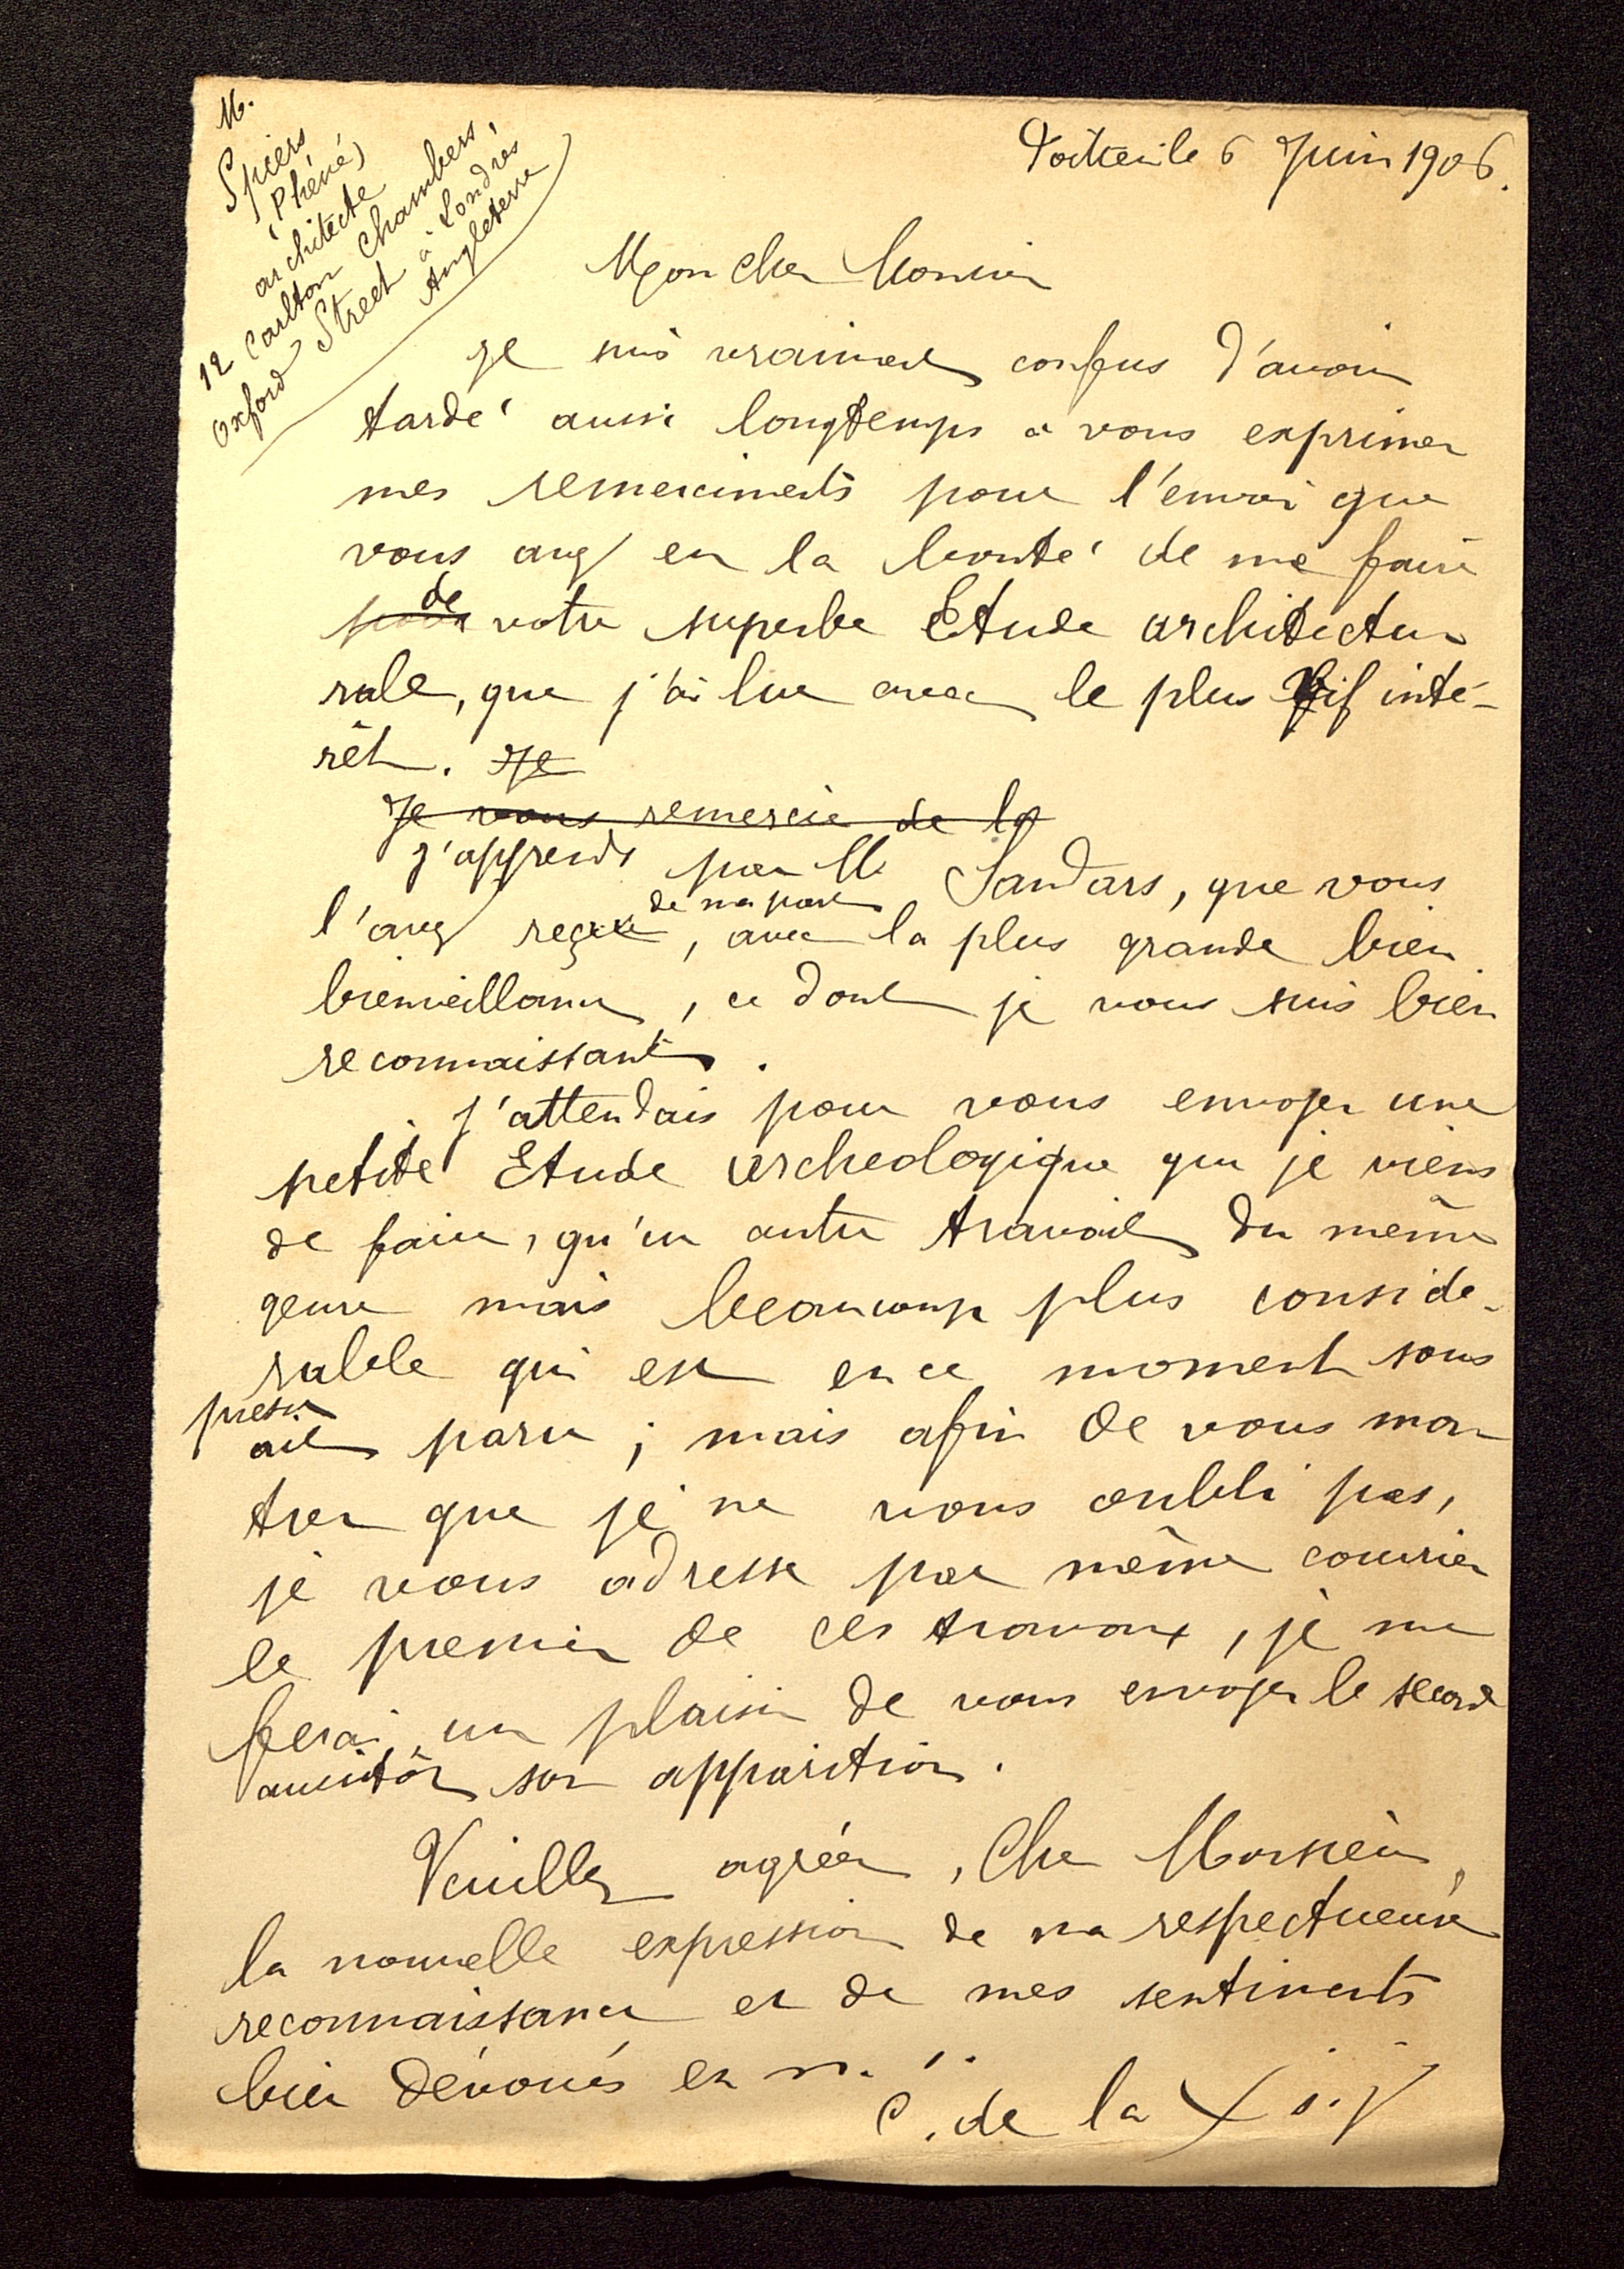 M.
Spiers
(Phené)
architecte
12 Carlton Chambers,
Oxford Street à Londres
Angleterre
Poitiers le 6 Juin 1906.
Mon cher Monsieur
Je suis vraiment confus d'avoir
tardé aussi longtemps a vous exprimer
mes remerciments pour l'envoi que
vous avez eu la bonté de me faire
pour de votre superbe Etude architectu-
rale, que j'ai lue avec le plus vif inté-
rêt. Je
Je vous remercie de la
J'apprends par M. Sandars, que vous
l'avez reçu de ma part, avec la plus grande bien
bienveillance, ce dont je vous suis bien
reconnaissant.
J'attendais pour vous envoyer une
petite Etude archeologique que je viens
de faire, qu'un autre travail du même
genre mais beaucoup plus conside-
rable qui est en ce moment sous
presse ait paru ; mais afin de vous mon
trer que je ne vous oubli pas,
je vous adresse par même courrier
le premier de ces travaux, je me
ferai un plaisir de vous envoyer le second
aussitôt son apparition.
Veuillez agréer, Cher Monsieur,
la nouvelle expression de ma respectueuse
reconnaissance et de mes sentiments
bien dévoués en
C. de la